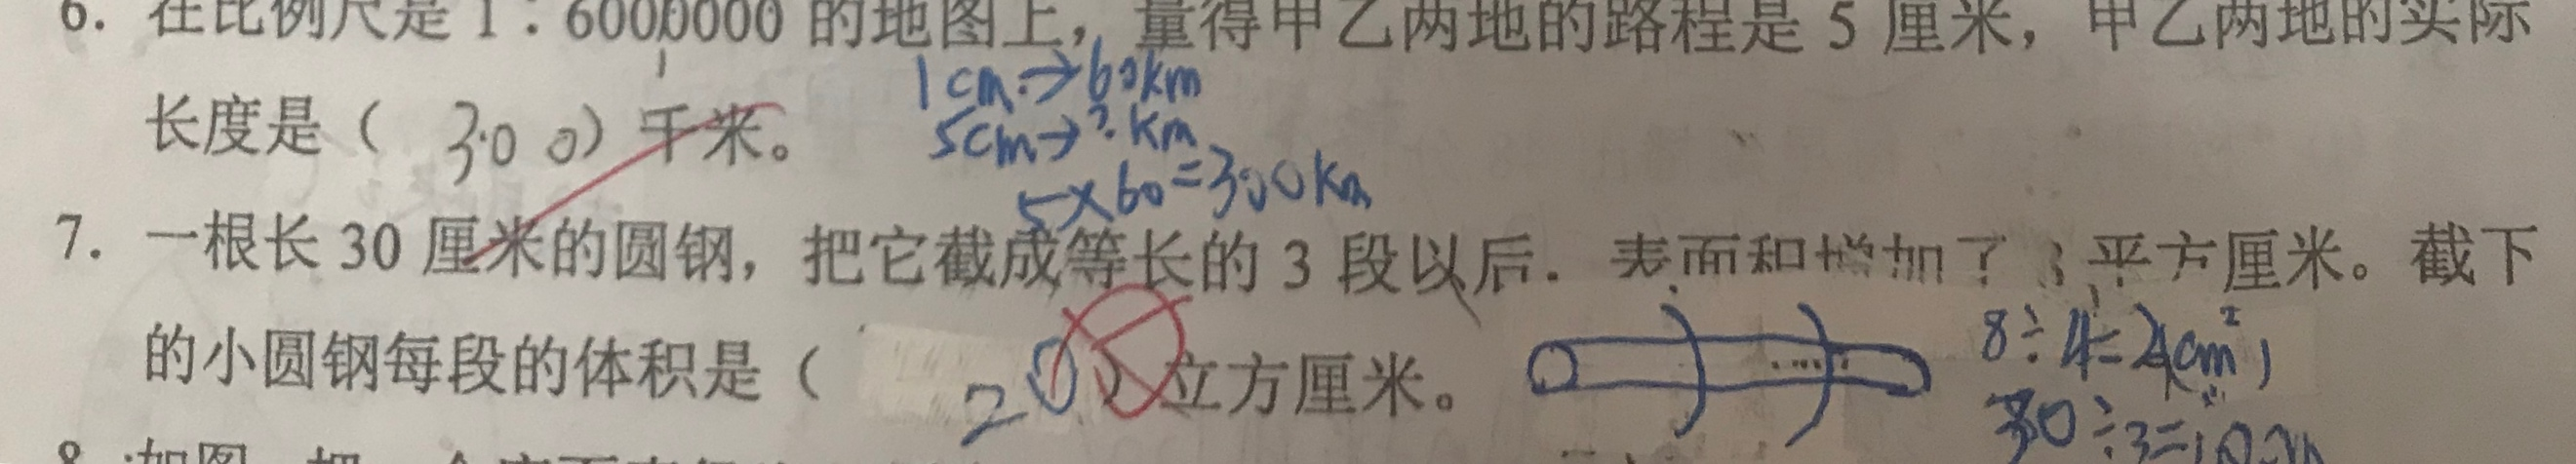 6. 在比例尺是 1:6000000 的地图上，量得甲乙两地的路程是 5 厘米，甲乙两地的实际
长度是（ 300 ）千米。
1cm→60km
5cm→?km
5×60=300km
7. 一根长 30 厘米的圆钢，把它截成等长的 3 段以后. 表面积增加了 平方厘米。截下
的小圆钢每段的体积是（ 20 ）立方厘米。
8÷4=2(cm²)
30÷3=10
8. 如图